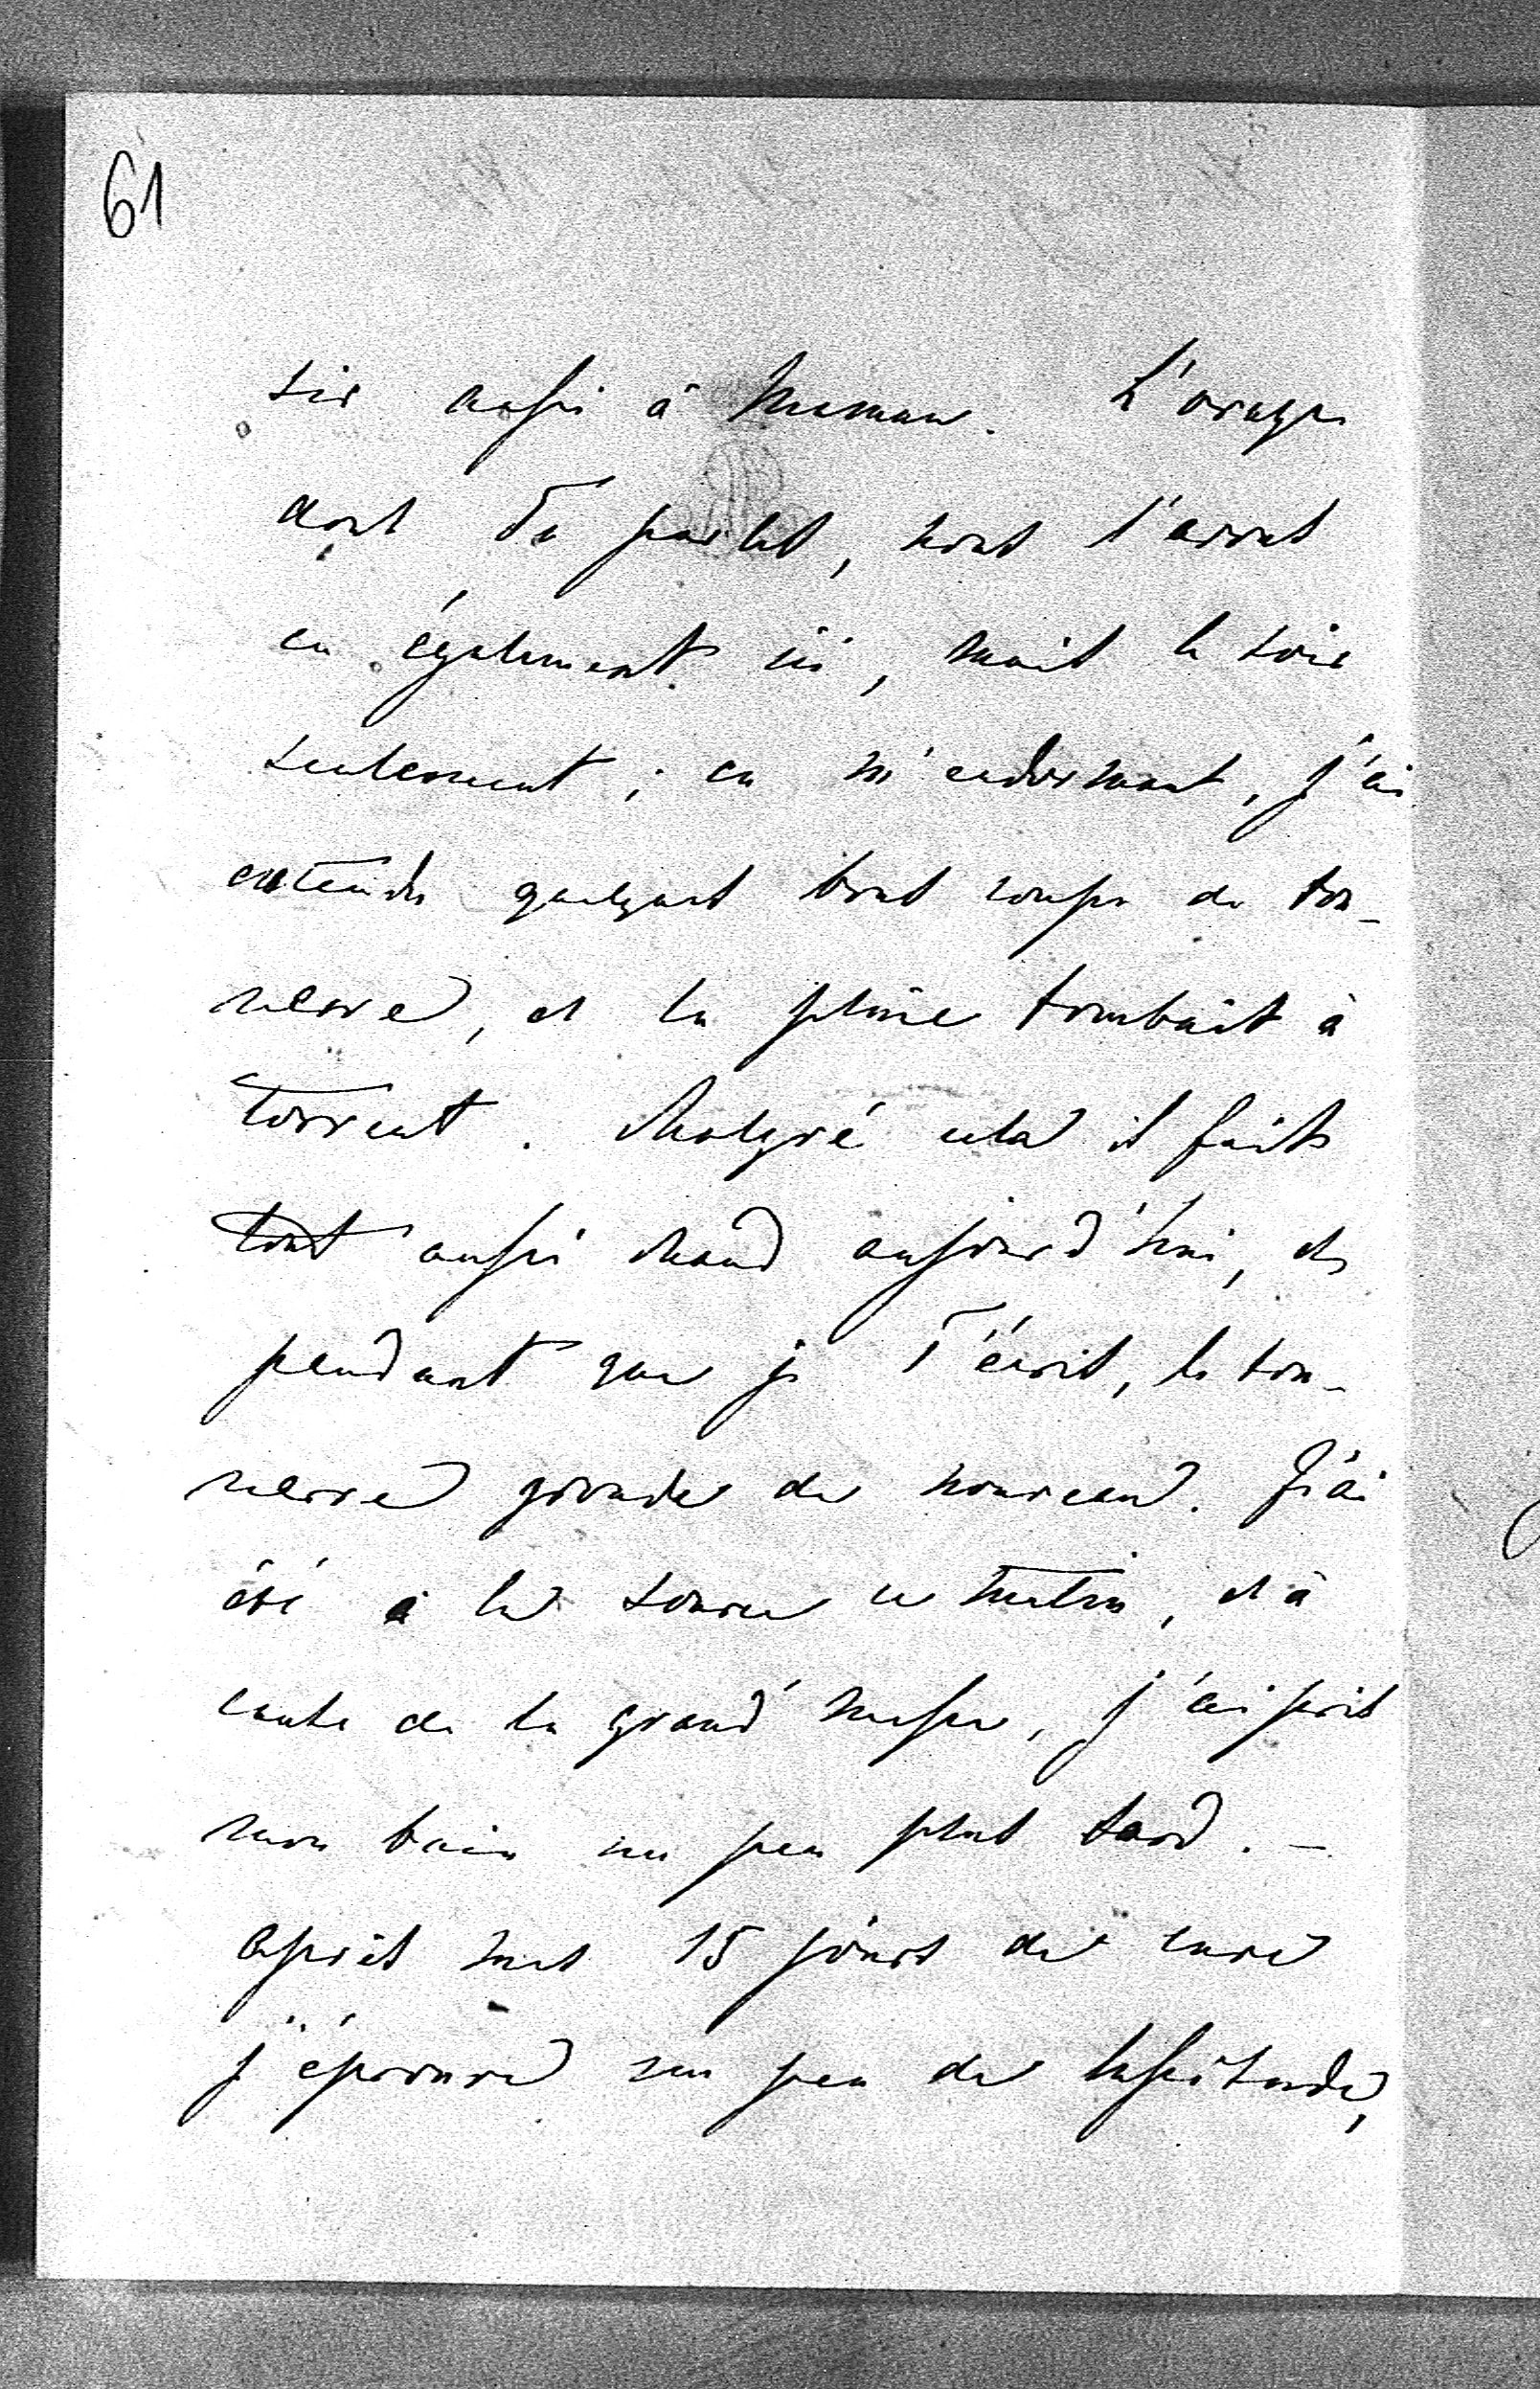 61
sir aussi à Maman. L'orage
dont Tu parles, nous l'avons
eu également ici, mais le soir
seulement ; en m'endormant, j'ai
entendu quelques bons coups de ton-
nerre, et la pluie tombait à
torrent. Malgré cela il fait
tout aussi chaud aujourd'hui, et
pendant que je T'écris, le ton-
nerre gronde de nouveau. J'ai
été à la source ce matin, et à
cause de la grand'messe, j'ai pris
mon bain un peu plus tard. —
Après mes 15 jours de cure
j'éprouve un peu de lassitude,